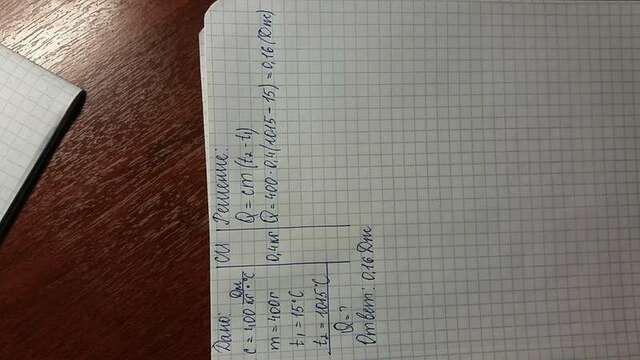 Дано:
СИ
Решение:
c = 400 Дж/кг·°C
m = 400г
0,4 кг
t₁ = 15°C
t₂ = 1015°C
Q = ?
Q = cm(t₂ - t₁)
Q = 400 · 0,4(1015 - 15) = 0,16 (Дж)
Ответ: 0,16 Дж